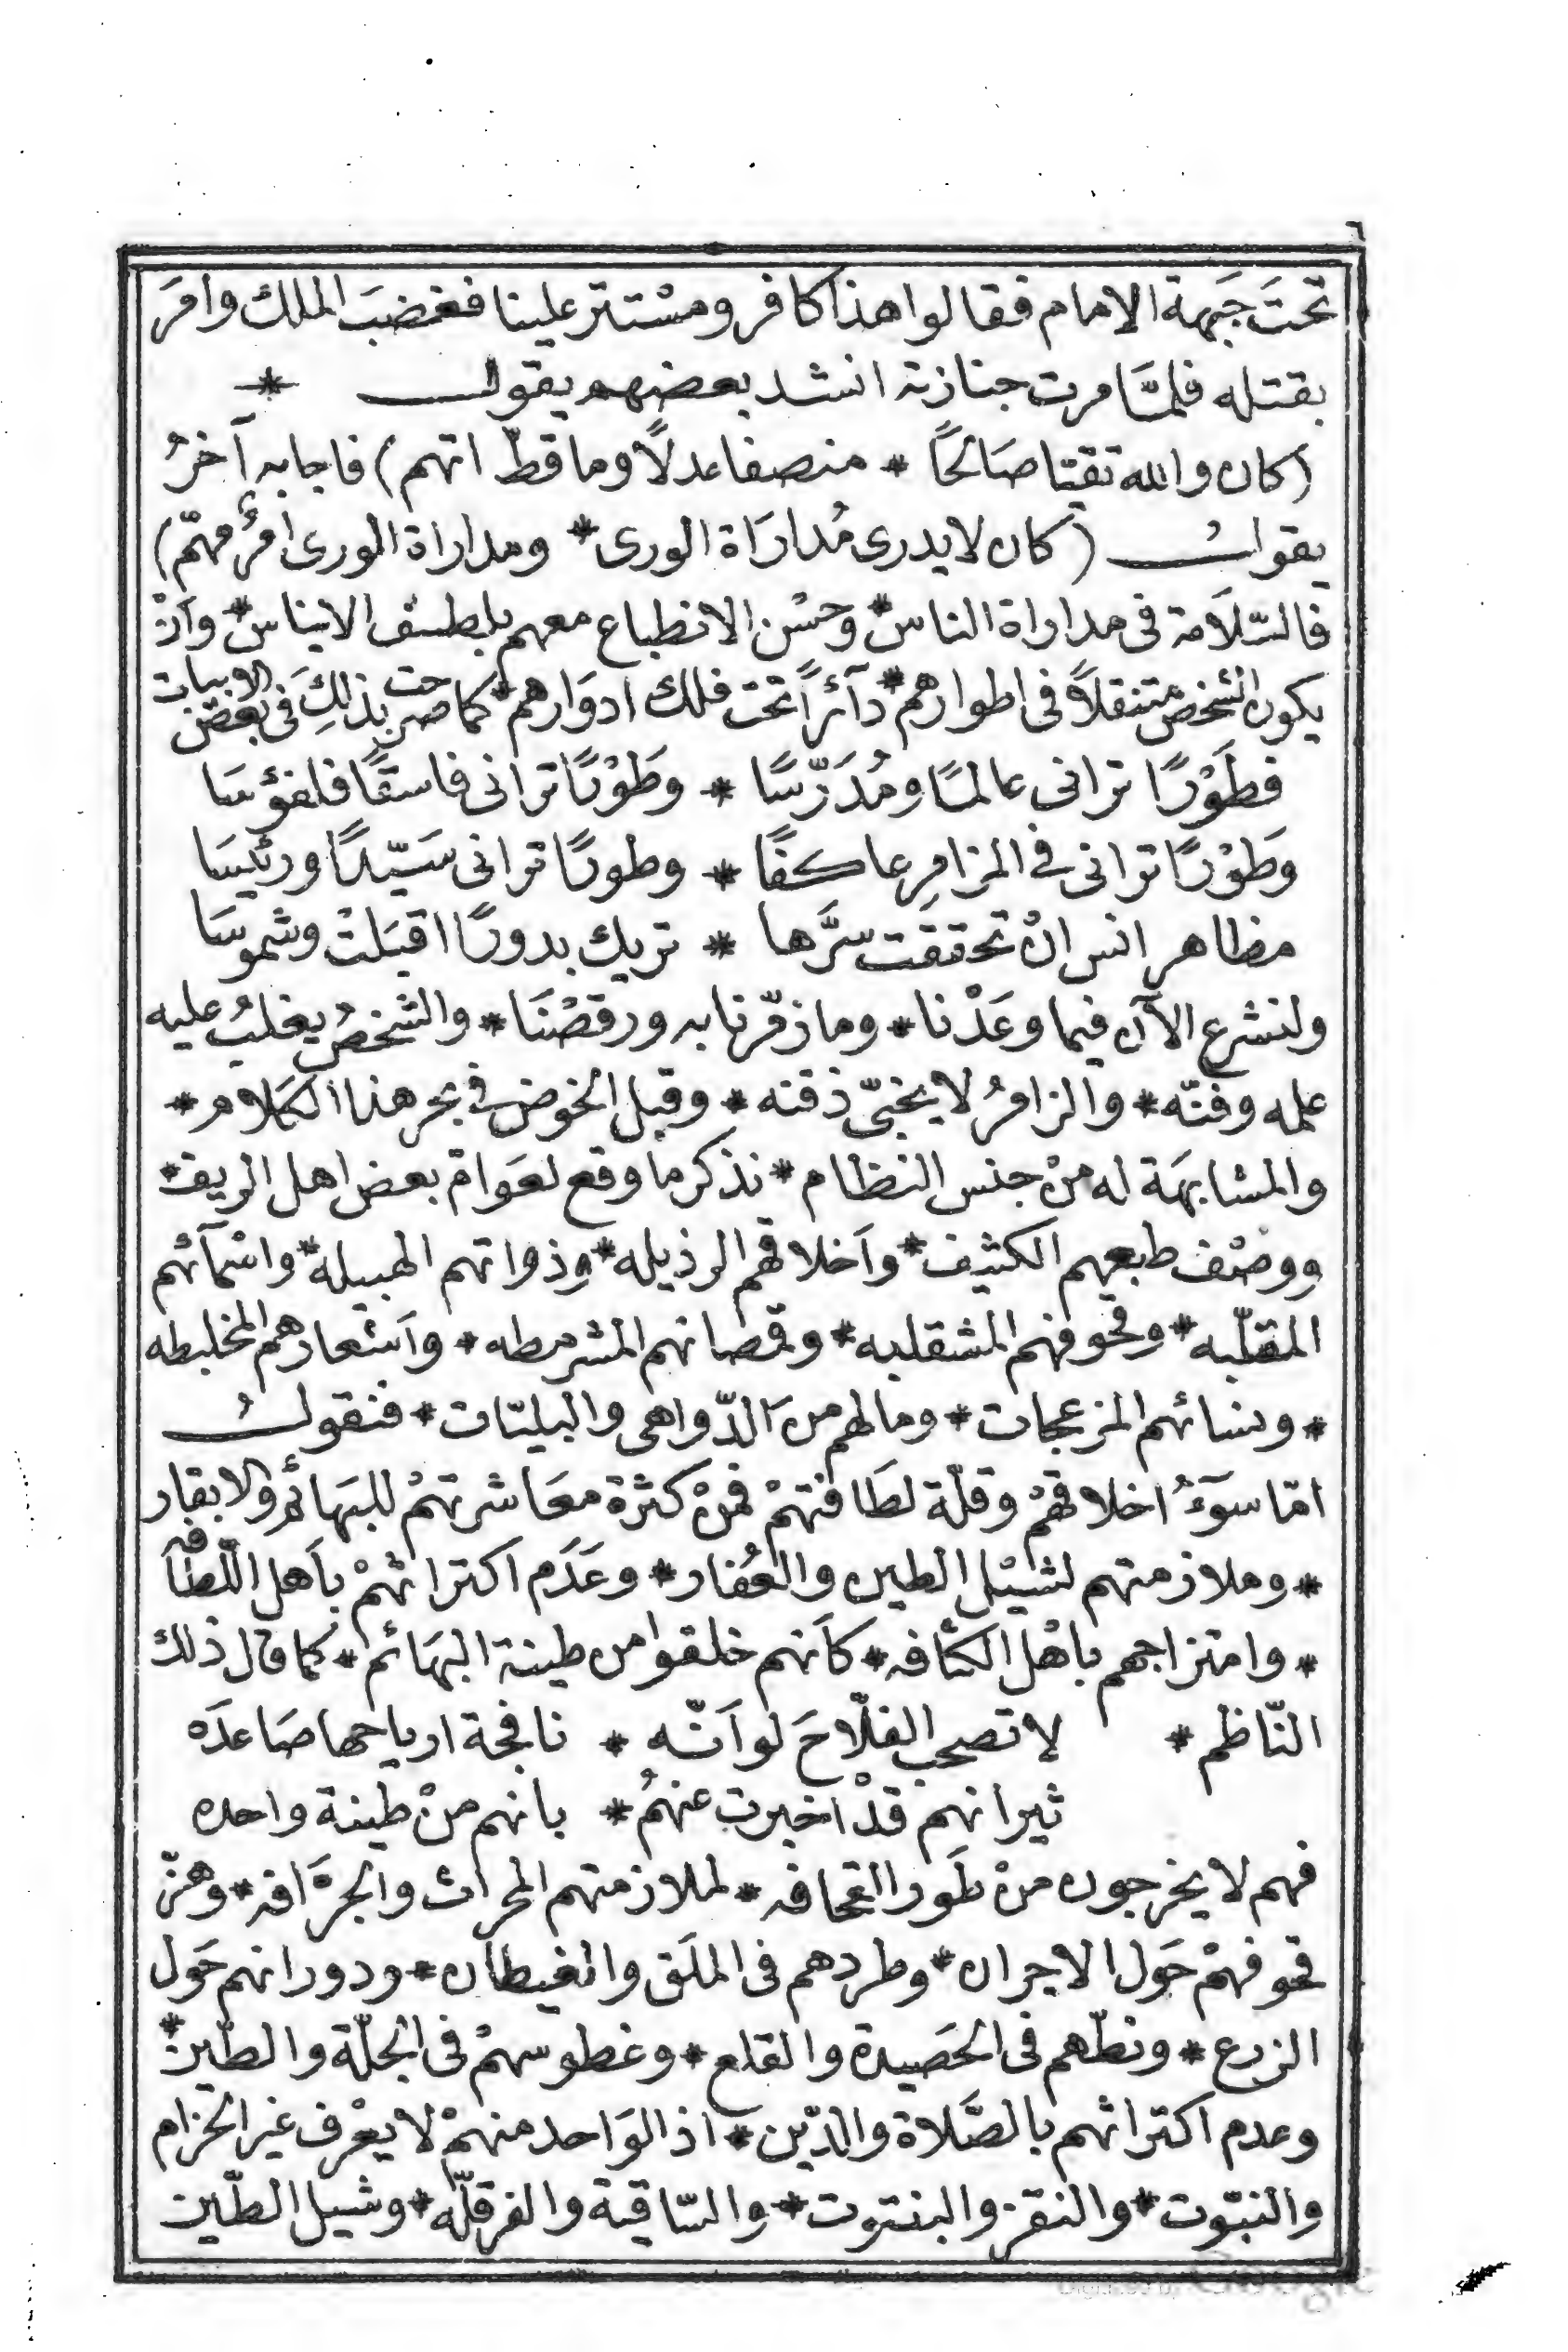 ٦
تحتَ جَبهة الامام فقالوا هذا كافر ومسْتتر علينا فغضبَ الملك وامرَ
بقتله فلمَّا مرت جنازته انشد بعضهم يقول *
(كان والله تقيّا صَالحًا * منصفا عدلًا وما قطّ اتهم) فاجابه آخرُ
يقولُ (كان لا يدرى مُدارَاة الورى * ومداراة الورى امرٌ مهمّ)
فالسّلَامة فى مداراة الناس * وحسْن الانطباع معهم بلطف الايناس * وانْ
يكون الشخص متنقلاً فى اطوارهم * دآئراً تحت فلك ادوَارهم * كما صرحت بذلكَ فى بعض الابيات
فطَوْرًا ترانى عالمًا ومُدَرّسًا * وطَوْرًا ترانى فاسقًا فلفؤسَا
وَطَوْرًا ترانى فى المزامِر عاكفًا * وطورًا ترانى سَيّدًا ورئيسَا
مظاهر انس انْ تحققت سرَّها * تريك بدورًا اقبَلتْ وشموسَا
ولنشرع الآن فيما وعَدْنا * وما زمّرنا به ورقصْنَا * والشخصُ يغلبُ عليه
علمه وفنّه * والزامرُ لا يخبّى ذقنه * وقبل الخوض فى بحر هذا الكلام *
والمشابهَة له منْ جنس النظام * نذكر ما وقع لعَوام بعض اهل الريف *
ووصْف طبعهم الكثيف * واَخلاقهم الرذيله * وذواتهم الهبيلة * واسْمآئهم
المقلّبه * وقحوفهم المشقلبه * وقمصانهم المشرمطه * واَشعارهم المخلبطه
* ونسائهم المزعجات * وما لهم منَ الدّواهى والبليّات * فنقولُ
امّا سوَٓءُ اخلاقهمْ وقلّة لطَافتهمْ فمنْ كثرْة معَاشرتهمْ للبهَائم والابقار
* وملازمتهم لشيْل الطين والعُفار * وعَدَم اكتراثهمْ باَهل اللّطافه
* وامتزاجهم باهْل الكثافه * كاَنهم خلقوا من طينة البهَائم * كما قال ذلك
النّاظم * لا تصحب الفلّاحَ لو اَنّه * نافجة ارياحها صَاعدَه
ثيرانهم قدْ اخبرت عنهُم * بانهم منْ طينة واحده
فهم لا يخرجون منْ طَور القحافه * لملازمتهم المحراث والجرّافه * وهزّ
قحوفهمْ حَول الاجران * وطردهم فى الملَق والغيطان * ودورانهم حَول
الزرع * ونطّهم فى الحَصيدة والقلع * وغطوسهمْ فى الجلّة والطّين *
وعدم اكتراثهم بالصَّلاة والدّين * اذ الوَاحد منهمْ لا يعْرف غير الحزام
والنبّوت * والنقز والبنتوت * والسّاقية والفرقلّه * وشيل الطّين